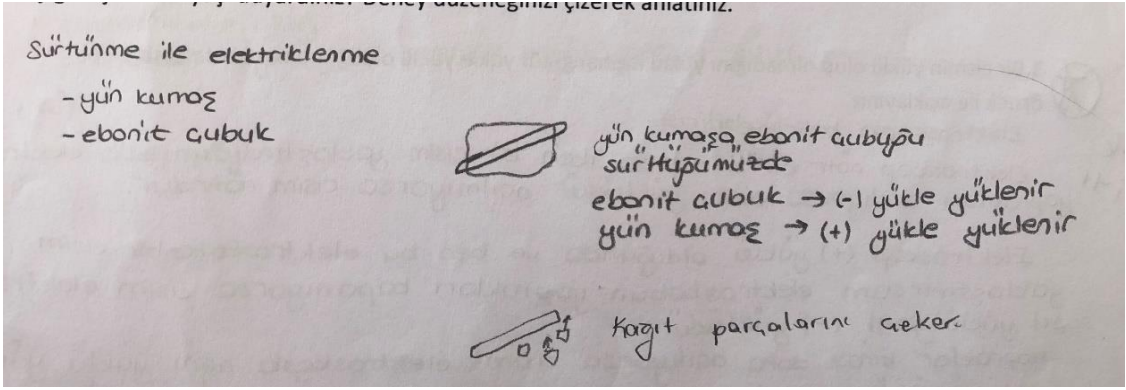 Deney düzeneğinizi çizerek anlatınız.
Sürtünme ile elektriklenme
- yün kumaş
- ebonit çubuk
yün kumaşa ebonit çubuğu
sürttüğümüzde
ebonit çubuk → (-) yükle yüklenir
yün kumaş → (+) yükle yüklenir
Kağıt parçalarını çeker.